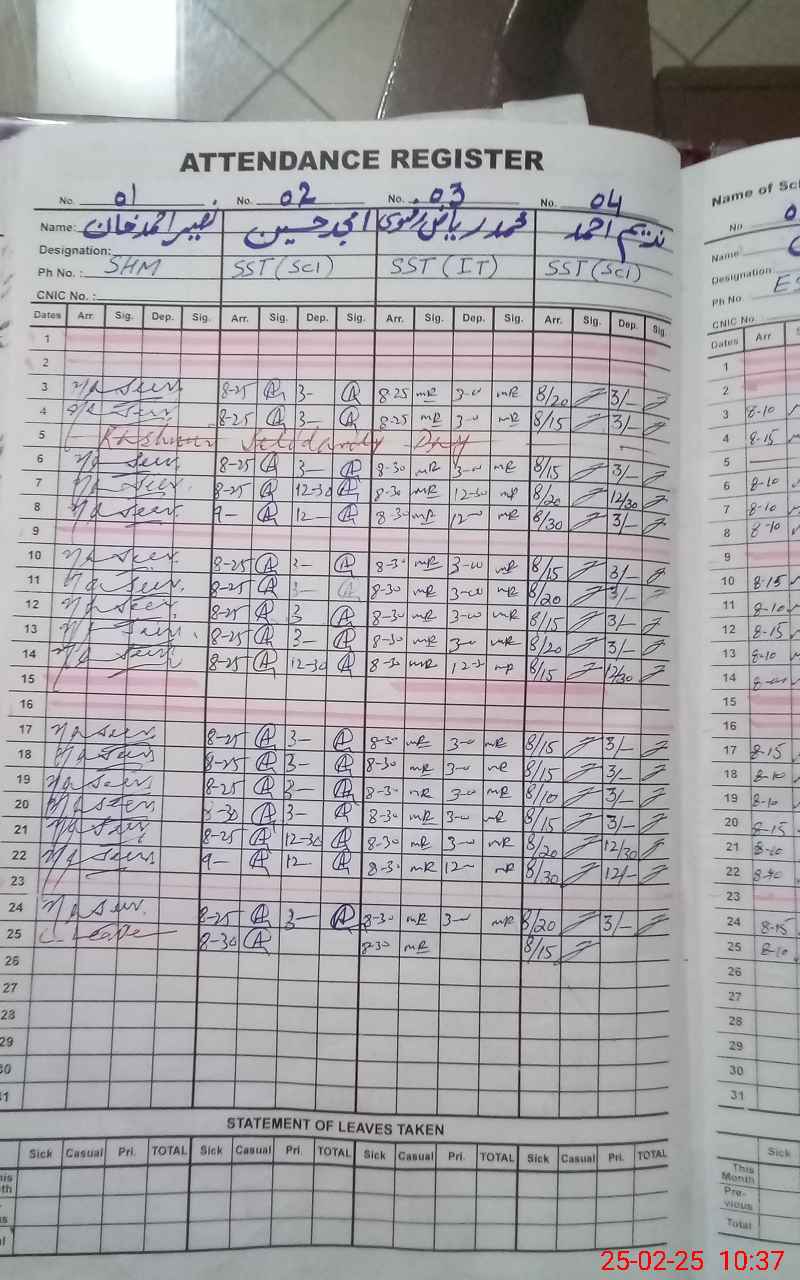 ATTENDANCE REGISTER
No. 01 No. 02 No. 03 No. 04
Name: نصیر احمد خان امجد حسین محمد ریاض رضوی ندیم احمد
Designation:
Ph No. : SHM SST (Sci) SST (IT) SST (Sci)
CNIC No. :
Dates Arr. Sig. Dep. Sig. Arr. Sig. Dep. Sig. Arr. Sig. Dep. Sig. Arr. Sig. Dep. Sig.
1
2
3 8-25 3- 8-25 mR 3-00 mR 8/20 3/-
4 8-25 3- 8-25 mR 3-00 mR 8/15 3/-
5 Kashmir Solidarity Day
6 8-25 3- 8-30 mR 3-00 mR 8/15 3/-
7 8-25 12-30 8-30 mR 12-30 mR 8/20 12/30
8 9- 12- 8-30 mR 12-00 mR 8/30 3/-
9
10 8-25 3- 8-30 mR 3-00 mR 8/15 3/-
11 8-25 3- 8-30 mR 3-00 mR 8/20 3/-
12 8-25 3 8-30 mR 3-00 mR 8/15 3/-
13 8-25 3- 8-30 mR 3-00 mR 8/20 3/-
14 8-25 12-30 8-30 mR 12-30 mR 8/15 12/30
15
16
17 8-25 3- 8-30 mR 3-00 mR 8/15 3/-
18 8-25 3- 8-30 mR 3-00 mR 8/15 3/-
19 8-25 3- 8-30 mR 3-00 mR 8/10 3/-
20 8-30 3- 8-30 mR 3-00 mR 8/15 3/-
21 8-25 12-30 8-30 mR 3-00 mR 8/20 12/30
22 9- 12- 8-30 mR 12-00 mR 8/30 12/-
23
24 8-25 3- 8-30 mR 3-00 mR 8/20 3/-
25 C. Leave 8-30 8-30 mR 8/15
26
27
28
29
30
31
STATEMENT OF LEAVES TAKEN
Sick Casual Pri. TOTAL Sick Casual Pri. TOTAL Sick Casual Pri. TOTAL Sick Casual Pri. TOTAL
Name of
No
Name
Designation:
Ph No
CNIC No
Dates Arr
1
2
3 8-10
4 8-15
5
6 8-10
7 8-10
8 8-10
9
10 8-15
11 8-10
12 8-15
13 8-10
14
15
16
17 8-15
18 8-10
19 8-10
20 8-15
21 8-10
22
23
24 8-15
25 8-10
26
27
28
29
30
31
Sick
This
Month
Pre-
vious
Total
25-02-25 10:37